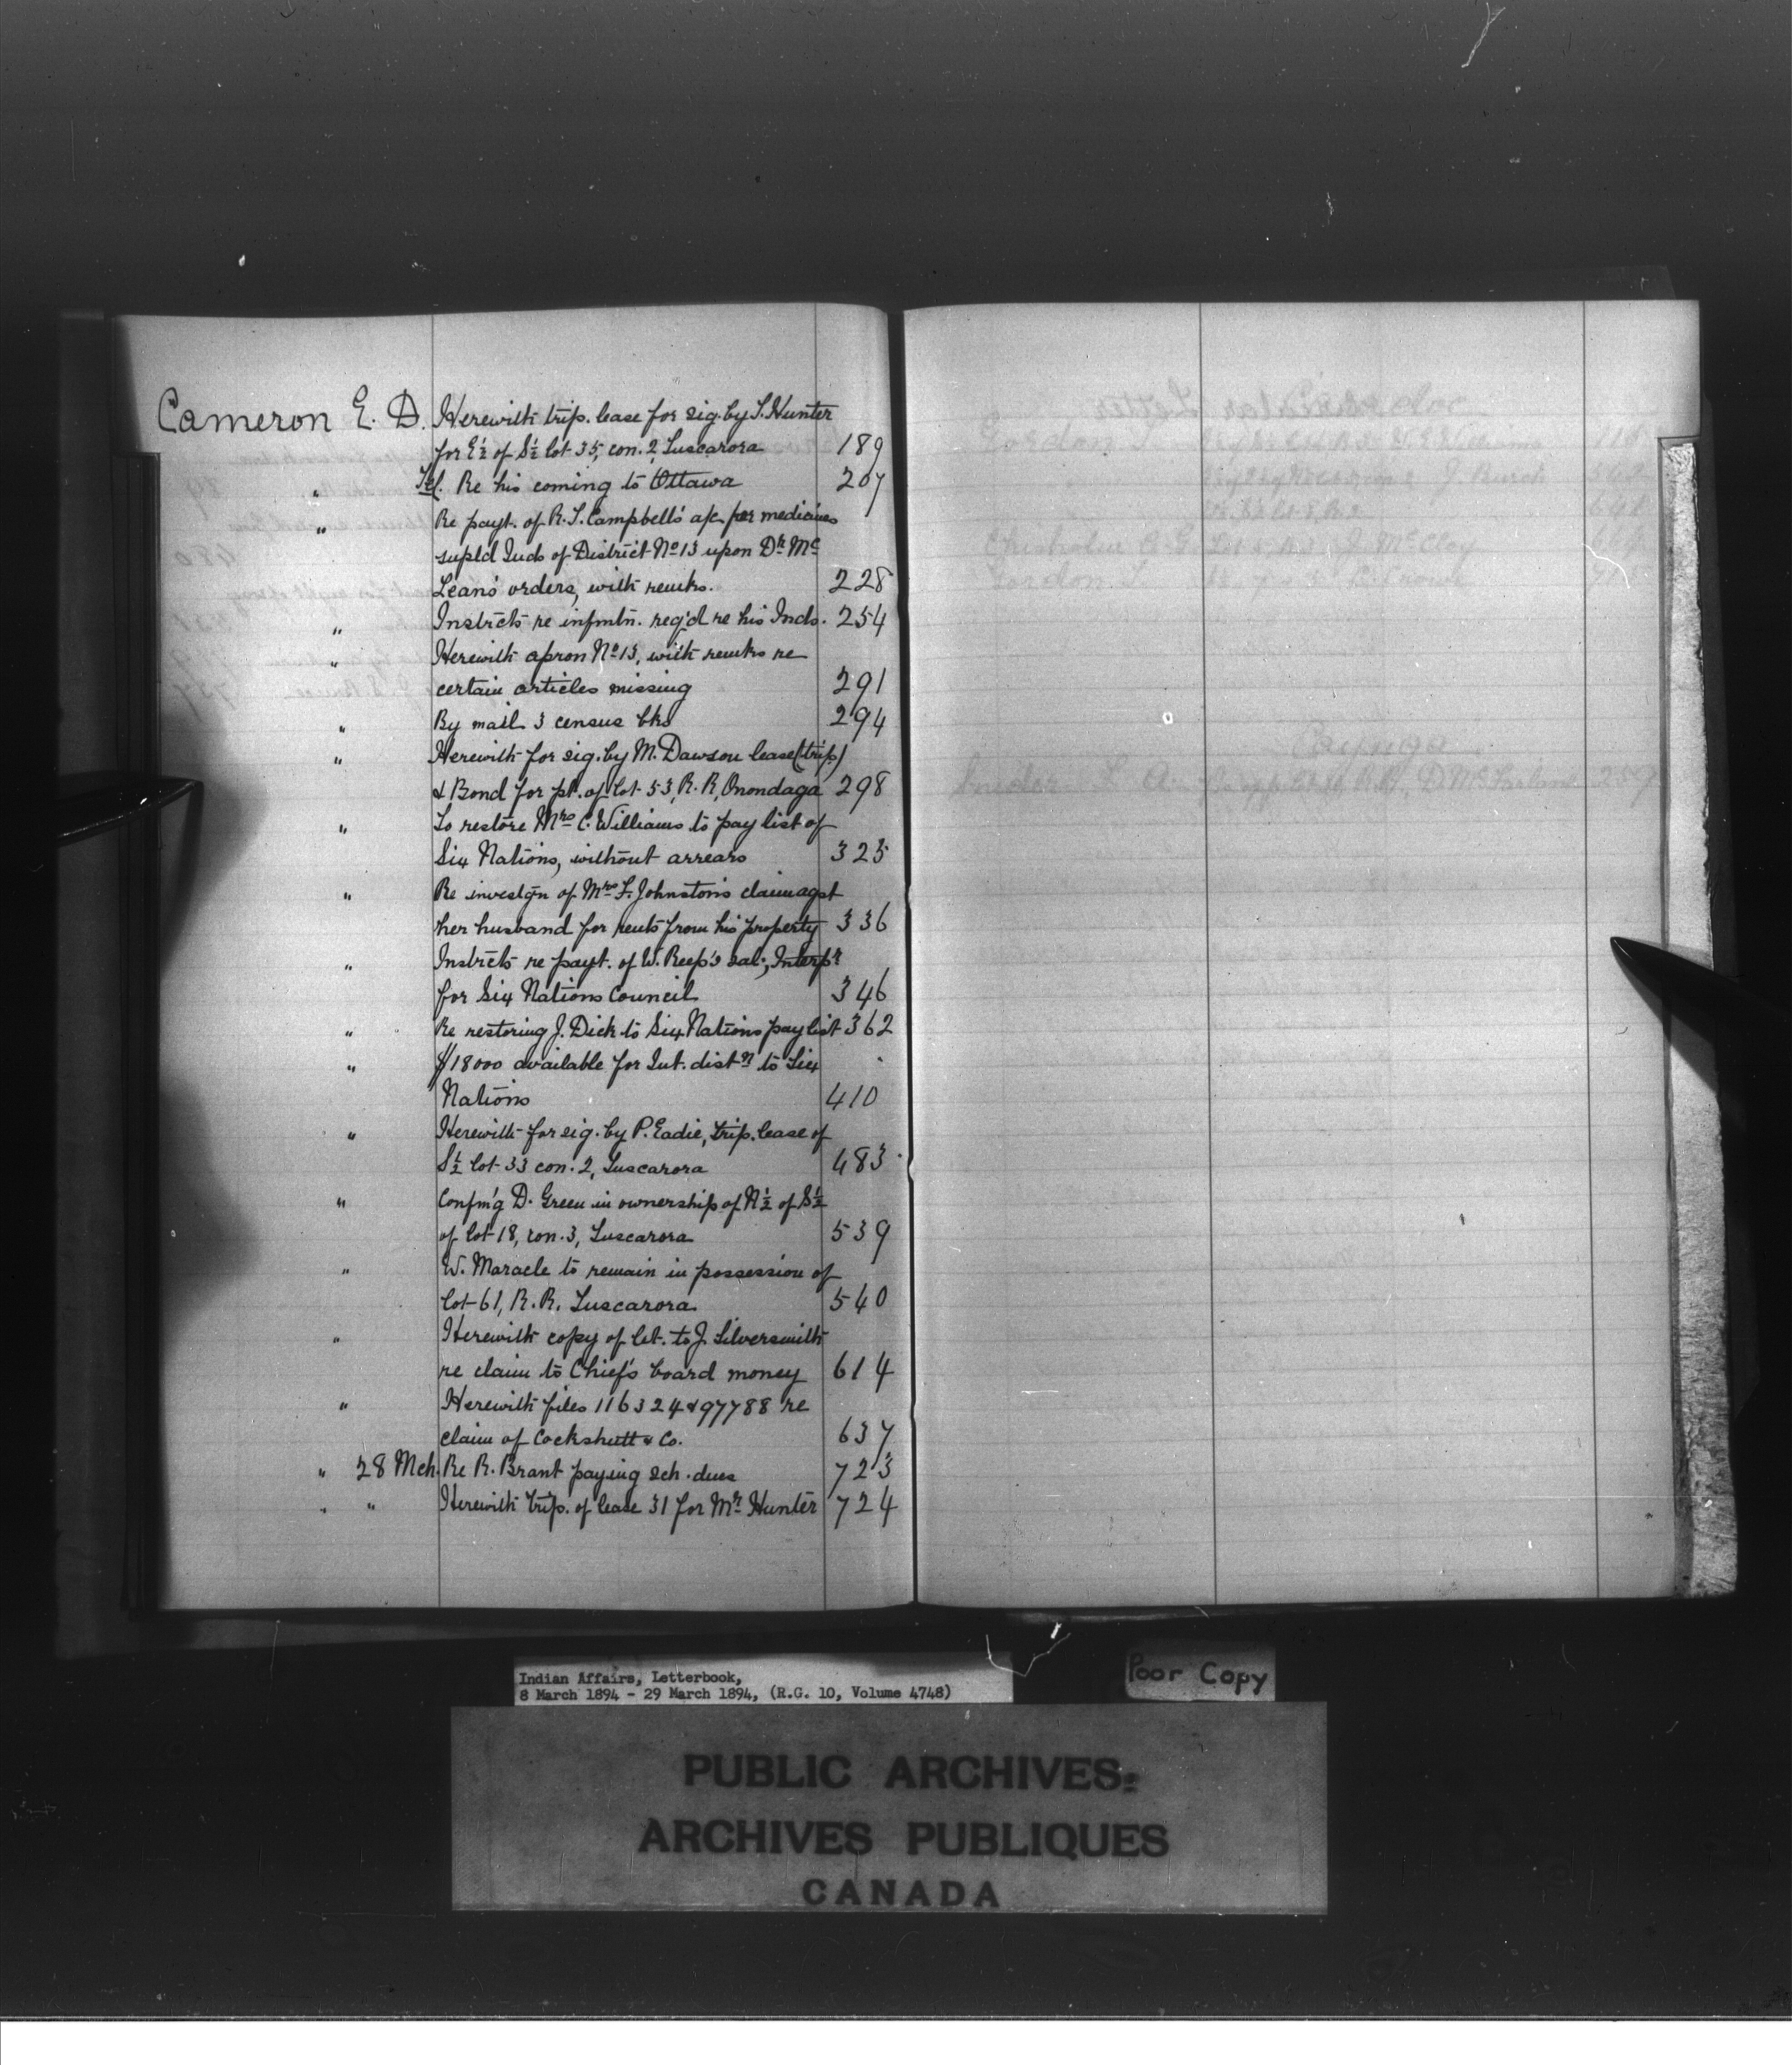 Cameron E. D. Herewith trip. lease for sig. by T. Hunter
for E½ of S½ lot 35, con. 2, Tuscarora 189
" Tel. Re his coming to Ottawa 207
" Re payt. of R. T. Campbell's a/c for medicines
supld Inds of District No 13 upon Dr. Mc
Lean's orders, with remks. 228
" Instrcts re infmtn. req'd re his Inds. 254
" Herewith apron No 13, with remks re
certain articles missing 291
" By mail 3 census bks 294
" Herewith for sig. by M. Dawson lease (trip.)
& Bond for pt. of lot 53, R. R, Onondaga 298
" To restore Mrs C. Williams to pay list of
Six Nations, without arrears 325
" Re investgn of Mrs F. Johnston's claim agst
her husband for rents from his property 336
" Instrcts re payt. of W. Reep's sal:, Interpr
for Six Nations Council 346
" Re restoring J. Dick to Six Nations pay list 362
" $18000 available for Int. distn to Six
Nations 410
" Herewith for sig. by P. Eadie, trip. lease of
S½ lot 33 con. 2, Tuscarora 483
" Confm'g D. Green in ownership of N½ of S½
of lot 18, con. 3, Tuscarora 539
" W. Maracle to remain in possession of
lot 61, R. R. Tuscarora 540
" Herewith copy of let. to J. Silversmith
re claim to Chief's board money 614
" Herewith files 116324 & 97788 re
claim of Cockshutt & Co. 637
" 28 Mch. Re R. Brant paying sch. dues 723
" " Herewith trip. of lease 31 for Mr. Hunter 724
Indian Affairs, Letterbook,
8 March 1894 - 29 March 1894, (R.G. 10, Volume 4748)
Poor Copy
PUBLIC ARCHIVES
ARCHIVES PUBLIQUES
CANADA